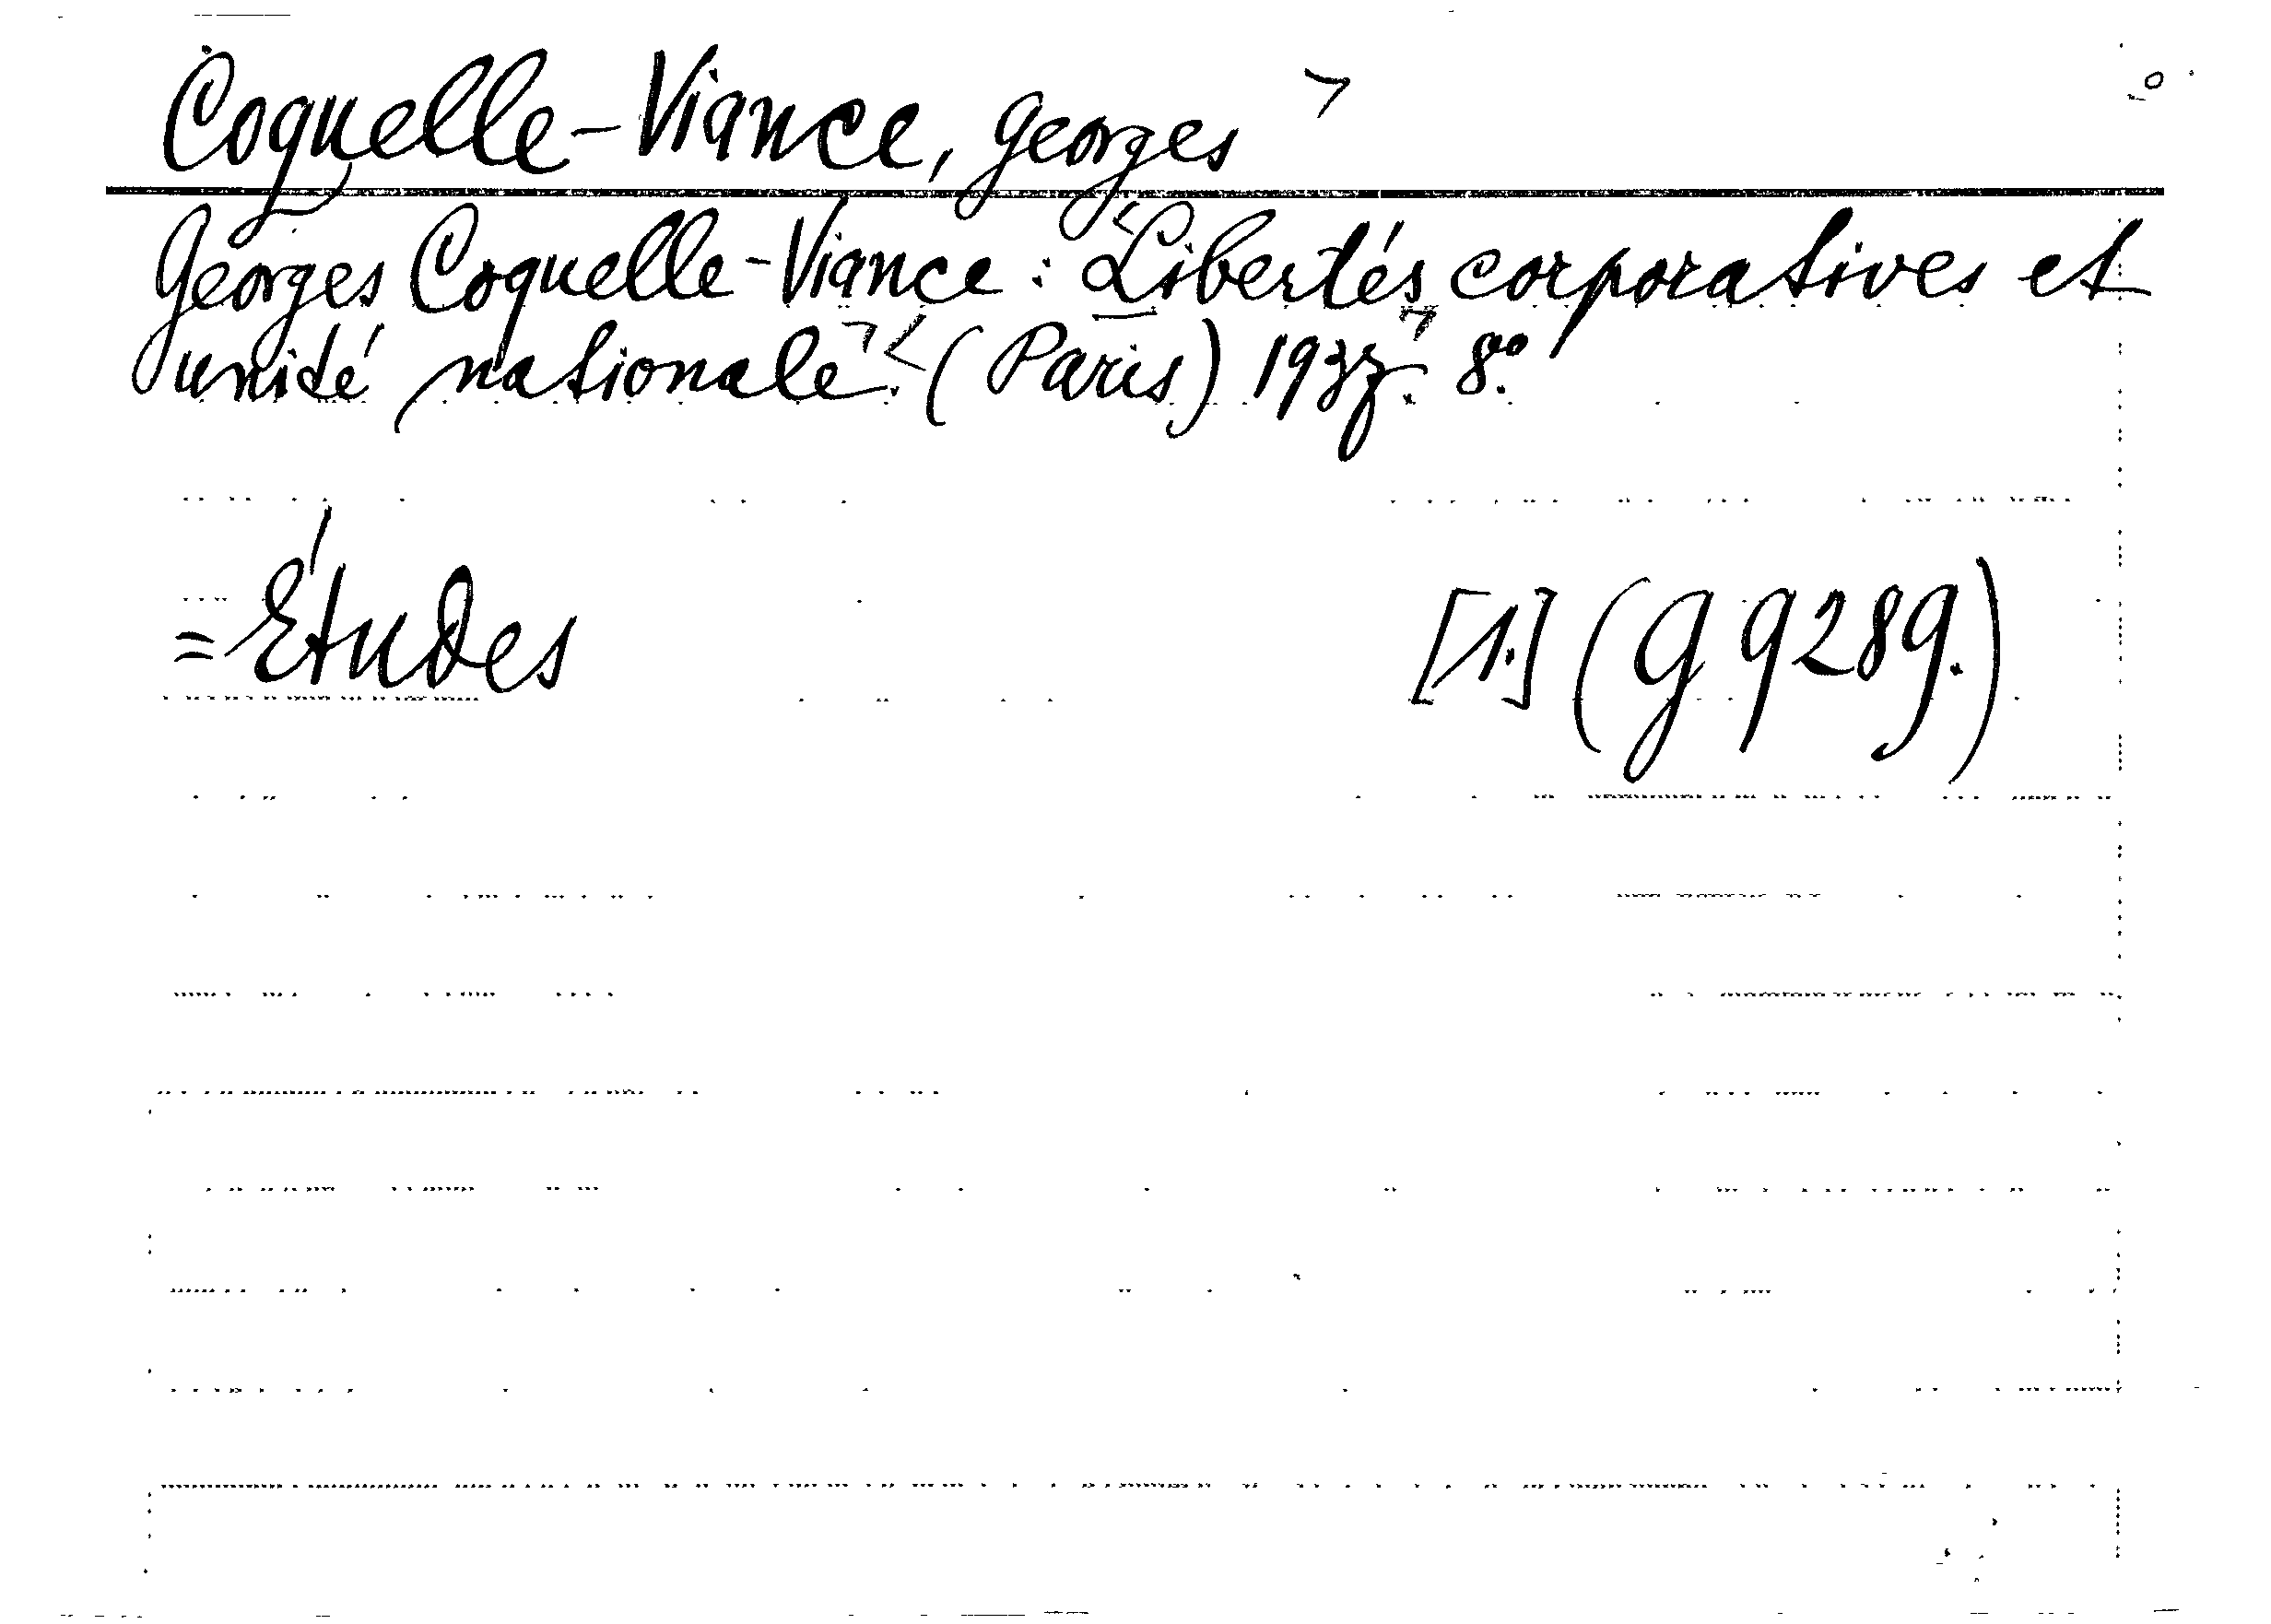 Coquelle-Viance, Georges
Georges Coquelle-Viance: Libertés corporatives et
unité nationale. (Paris) 1937. 8°.
= Études [1.] (G 9289.)